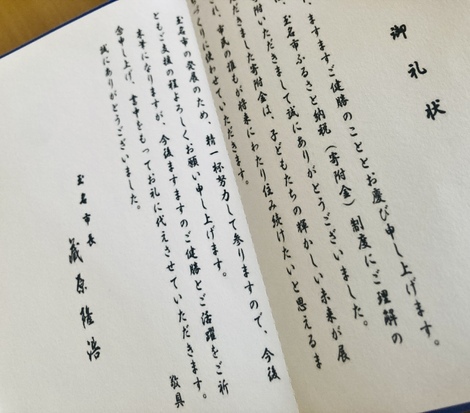 御礼状
ますますご健勝のこととお慶び申し上げます。
、玉名市ふるさと納税（寄附金）制度にご理解の
だきまして誠にありがとうございました。
だきました寄附金は、子どもたちの輝かしい未来が展
、市民の誰もが将来にわたり住み続けたいと思えるま
づくりに使わせていただきます。
玉名市の発展のため、精一杯努力して参りますので、今後
ともご支援の程よろしくお願い申し上げます。
末筆になりますが、今後ますますのご健勝とご活躍をご祈
念申し上げ、書中をもってお礼に代えさせていただきます。
誠にありがとうございました。
敬具
玉名市長 藏原隆浩